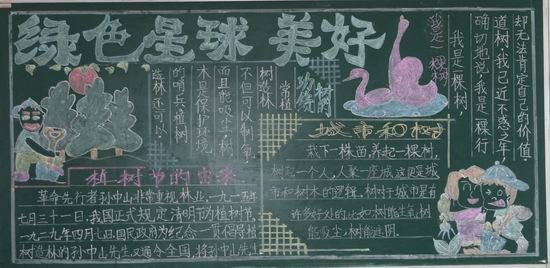 绿色星球 美好
造林还可以
的哨兵植树
木是保护环境
而且能灭尘,树
不但可以制氧,
树造林
常植
功绩
植树
我是一棵树
我是一棵树,
确切地说,我是一棵行
道树,我已近不惑之年
却无法肯定自己的价值
植树节的由来
革命先行者孙中山非常重视林业,一九一五年
七月三十一日,我国正式规定清明节为植树节,
一九二九年四月七日国民政府为纪念一贯倡导植
树造林的孙中山先生又通令全国,将孙中山先生
城市和树
栽下一株苗,养起一棵树,
树起一个人,人聚一座城这便是城
市和树木的逻辑,树对于城市是有
许多好处的比如树能生氧,树
能吸尘,树能遮阴。